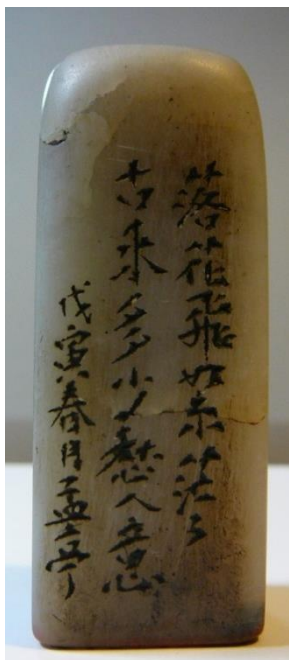 落花飛絮茫々
古来多少愁人意
戊寅春月孟亭